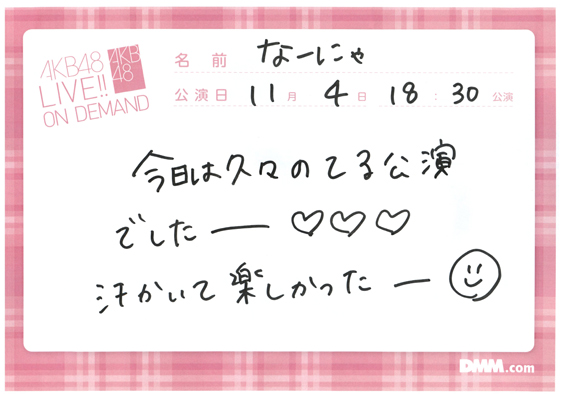 AKB48
LIVE!!
ON DEMAND
AKB
48
名前 なーにゃ
公演日 11月 4日 18:30 公演
今日は久々のてる公演
でしたー♡♡♡
汗かいて楽しかったー
DMM.com